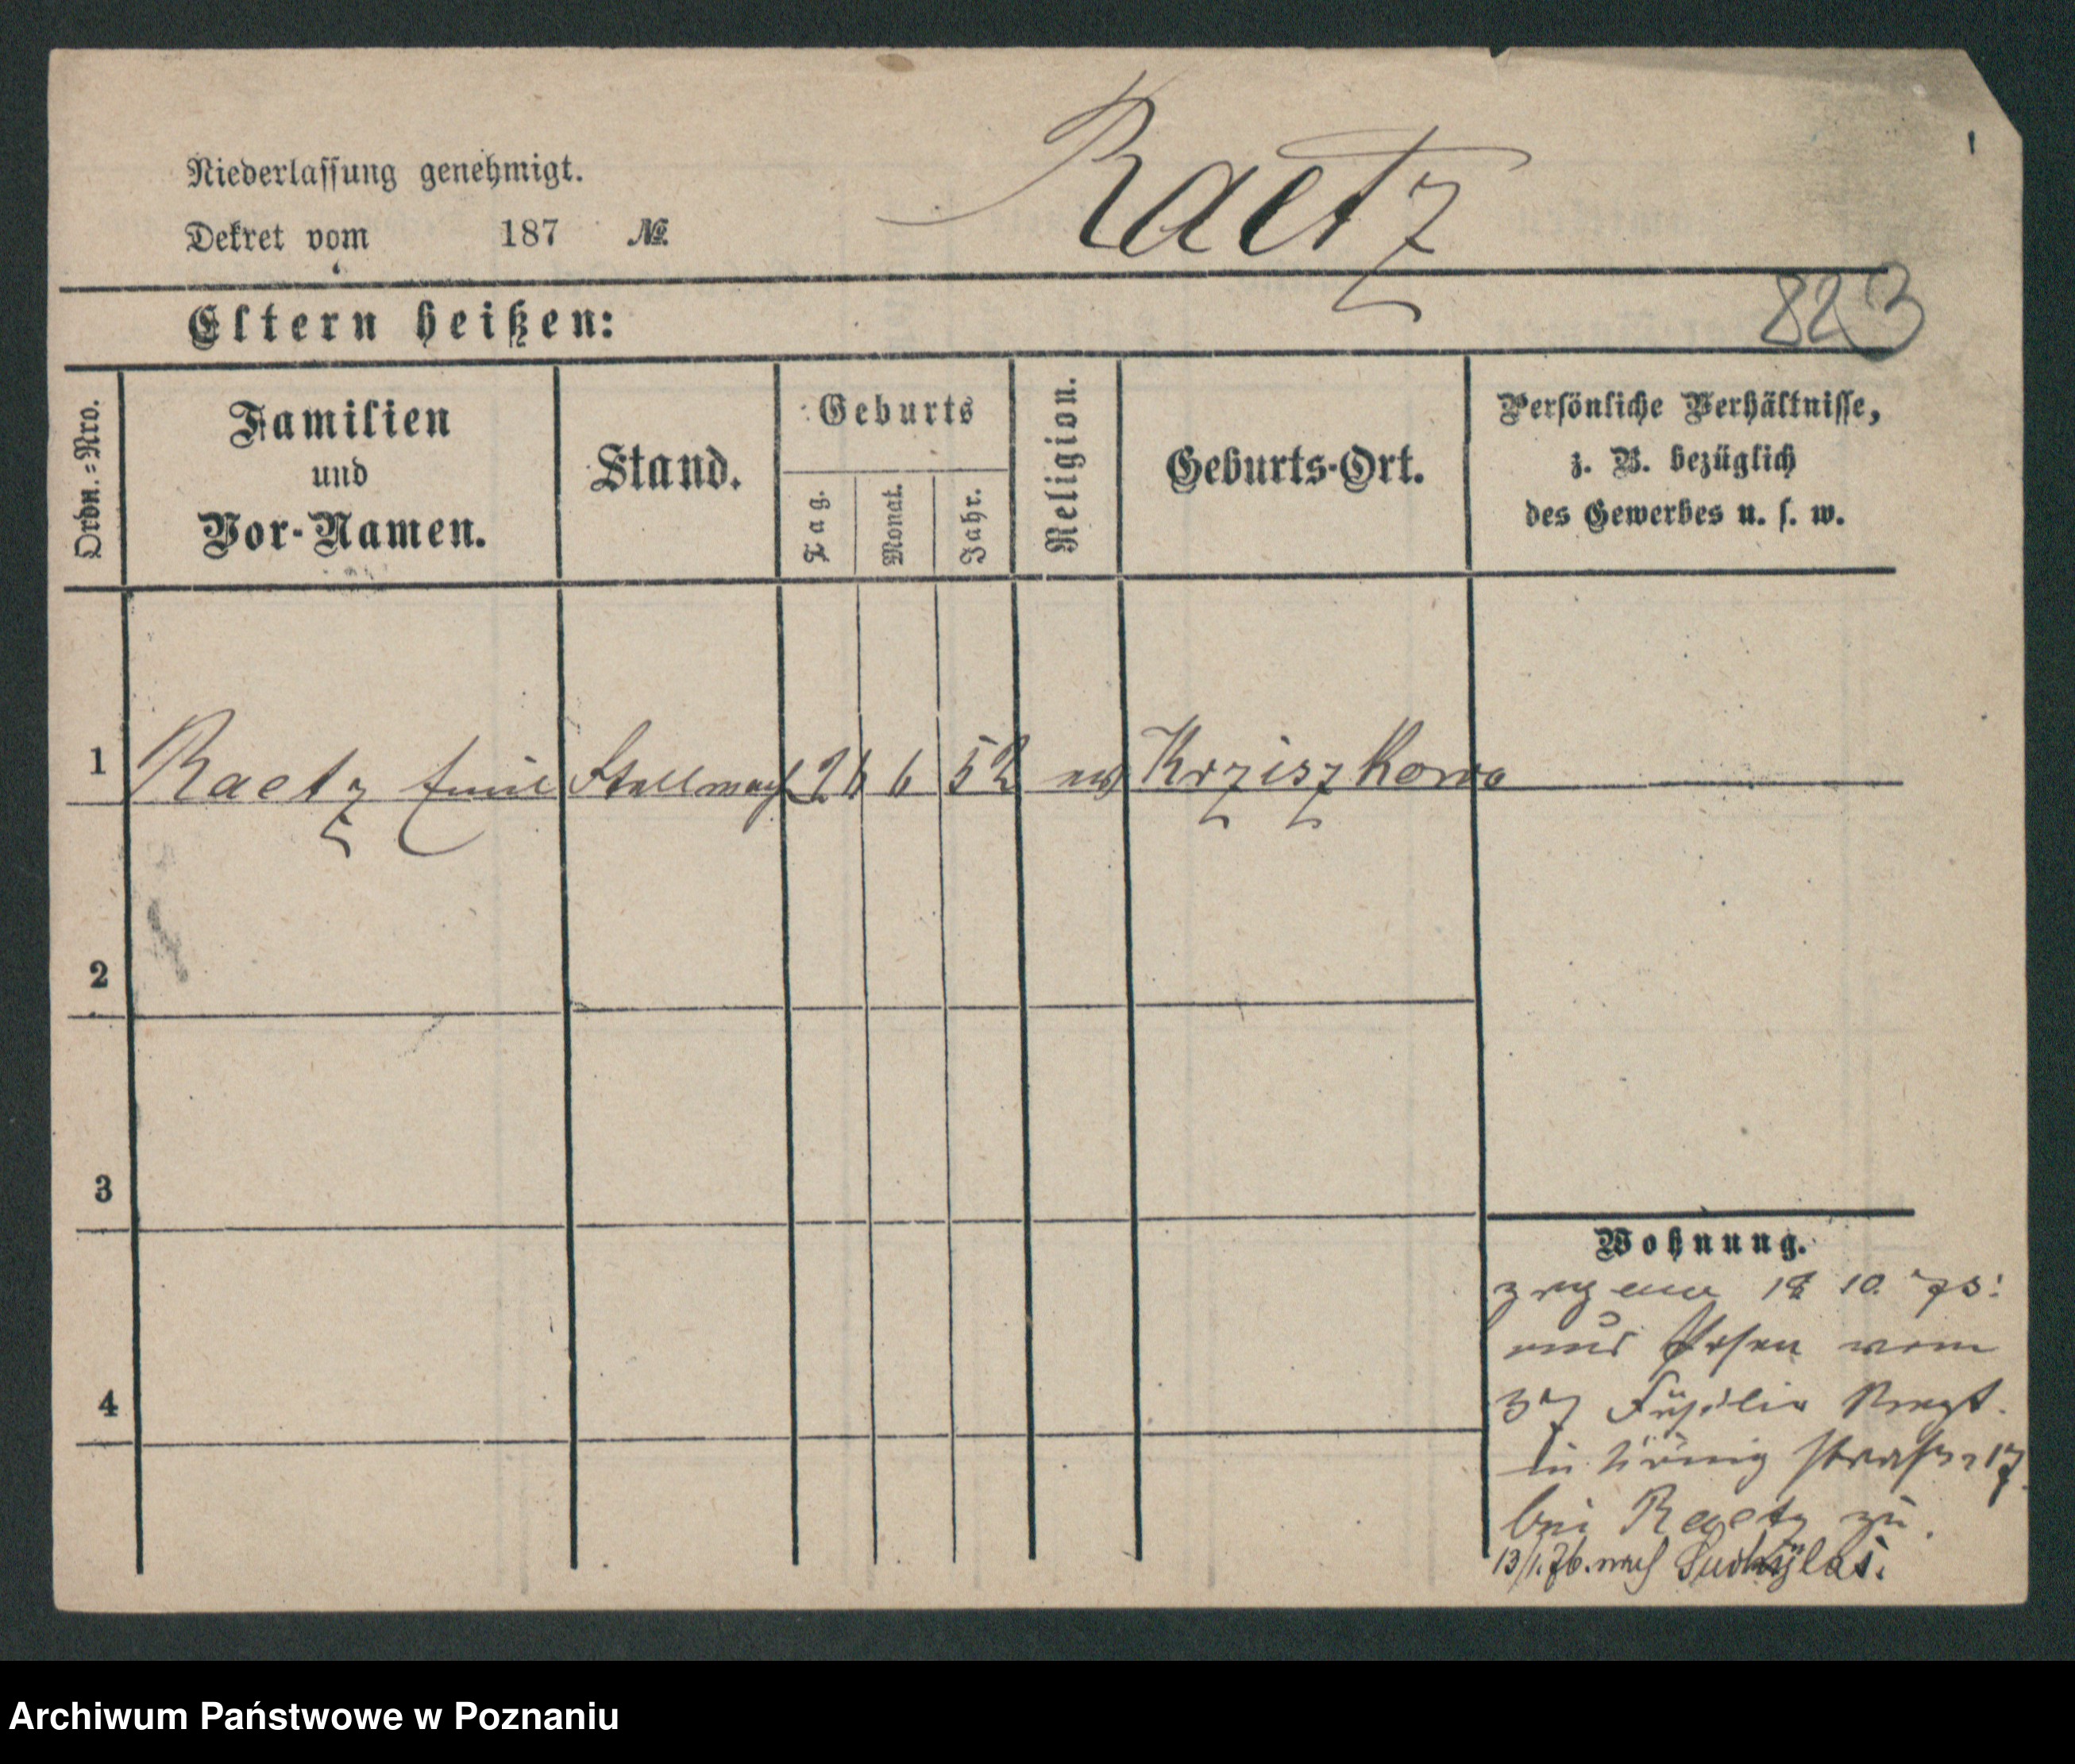 Raetz
Niederlassung genehmigt.
Dekret vom 187 №.
823
Eltern heißen:
Ordn.=Nro.
Familien
und
Vor-Namen.
Stand.
Geburts
Tag.
Monat.
Jahr.
Religion.
Geburts-Ort.
Persönliche Verhältnisse,
z. B. bezüglich
des Gewerbes u. s. w.
1 Raetz Emil Stellmach 26 6 52 ev Krziszkowo
2
3
4
Wohnung.
10. 75.
aus Posen vom
37 Füsilir Regt.
in straße 17.
bei Raetz zu.
13/1.76. nach
Archiwum Państwowe w Poznaniu